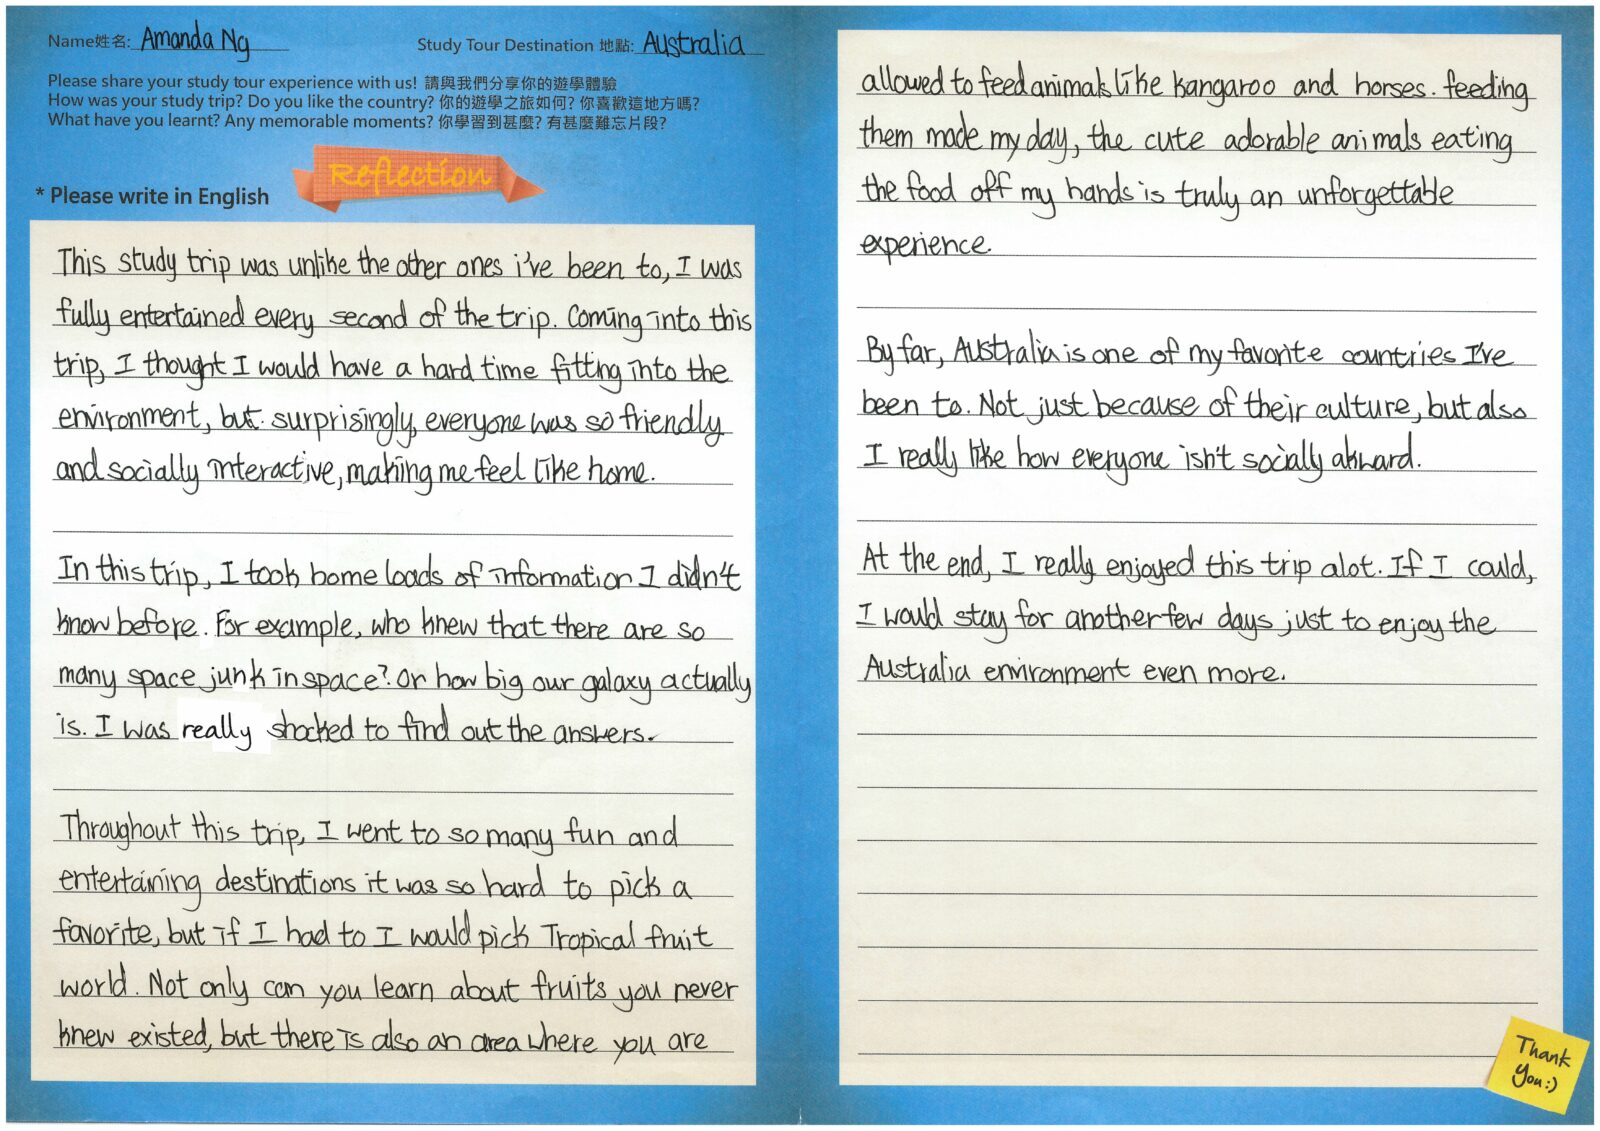 Name姓名: Amanda Ng
Study Tour Destination 地點: Australia
Please share your study tour experience with us! 請與我們分享你的遊學體驗
How was your study trip? Do you like the country? 你的遊學之旅如何? 你喜歡這地方嗎?
What have you learnt? Any memorable moments? 你學習到甚麼? 有甚麼難忘片段?
Reflection
* Please write in English
This study trip was unlike the other ones i've been to, I was
fully entertained every second of the trip. Coming into this
trip, I thought I would have a hard time fitting into the
environment, but surprisingly, everyone was so friendly
and socially interactive, making me feel like home.
In this trip, I took home loads of information I didn't
know before. For example, who knew that there are so
many space junk in space? Or how big our galaxy actually
is. I was really shocked to find out the answers.
Throughout this trip, I went to so many fun and
entertaining destinations it was so hard to pick a
favorite, but if I had to I would pick Tropical fruit
world. Not only can you learn about fruits you never
knew existed, but there is also an area where you are
allowed to feed animals like kangaroo and horses. feeding
them made my day, the cute adorable animals eating
the food off my hands is truly an unforgettable
experience.
By far, Australia is one of my favorite countries I've
been to. Not just because of their culture, but also
I really like how everyone isn't socially akward.
At the end, I really enjoyed this trip alot. If I could,
I would stay for another few days just to enjoy the
Australia environment even more.
Thank
You:)